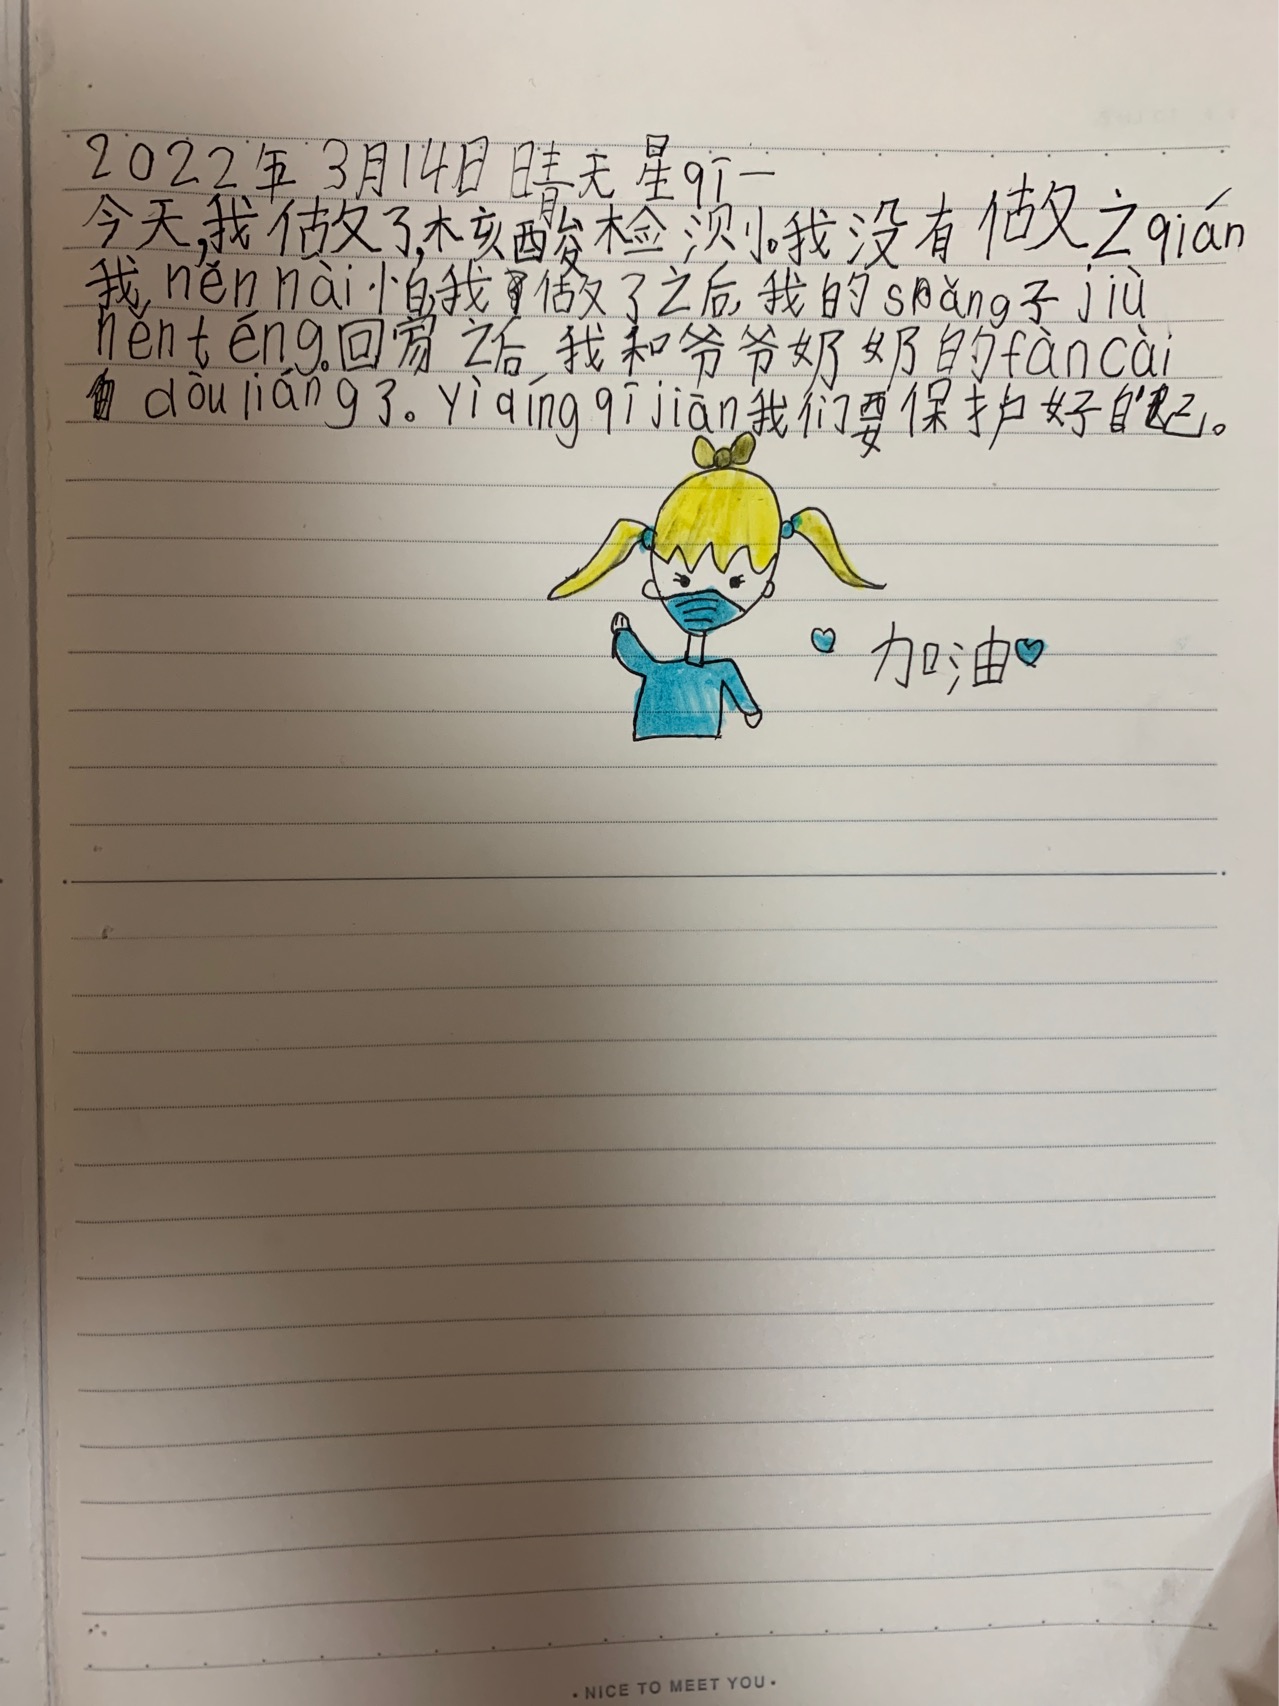 2022年3月14日 晴天 星qī一
今天,我做了,核酸检测。我没有做之qián
我,něn nài怕,我做了之后,我的sǎng子jiù
hěn téng。回家之后,我和爷爷奶奶的fàn cài
dòu liáng了。yì qíng qī jiān我们要保护好自己。
加油
• NICE TO MEET YOU •